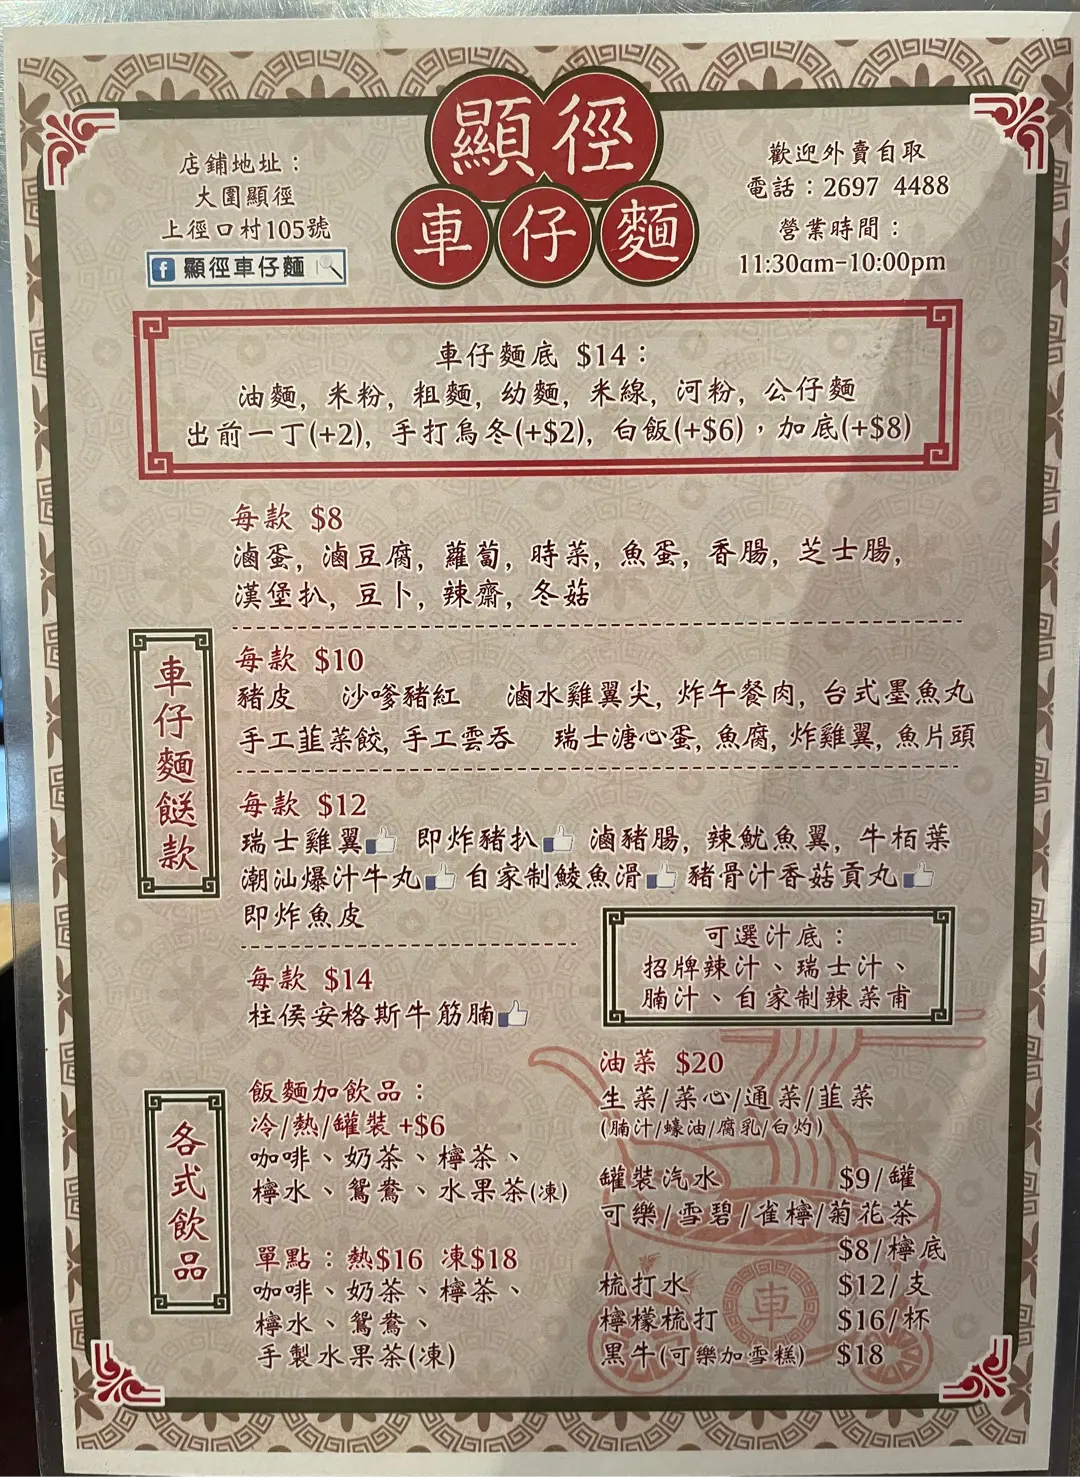 顯徑
車仔麵
店鋪地址：
大圍顯徑
上徑口村105號
f 顯徑車仔麵
歡迎外賣自取
電話：2697 4488
營業時間：
11:30am-10:00pm
車仔麵底 $14：
油麵, 米粉, 粗麵, 幼麵, 米線, 河粉, 公仔麵
出前一丁(+2), 手打烏冬(+$2), 白飯(+$6)，加底(+$8)
車仔麵餸款
每款 $8
滷蛋, 滷豆腐, 蘿蔔, 時菜, 魚蛋, 香腸, 芝士腸,
漢堡扒, 豆卜, 辣齋, 冬菇
每款 $10
豬皮 沙嗲豬紅 滷水雞翼尖, 炸午餐肉, 台式墨魚丸
手工韮菜餃, 手工雲吞 瑞士溏心蛋, 魚腐, 炸雞翼, 魚片頭
每款 $12
瑞士雞翼 即炸豬扒 滷豬腸, 辣魷魚翼, 牛栢葉
潮汕爆汁牛丸 自家制鯪魚滑 豬骨汁香菇貢丸
即炸魚皮
每款 $14
柱侯安格斯牛筋腩
可選汁底：
招牌辣汁、瑞士汁、
腩汁、自家制辣菜甫
各式飲品
飯麵加飲品：
冷/熱/罐裝 +$6
咖啡、奶茶、檸茶、
檸水、鴛鴦、水果茶(凍)
單點：熱$16 凍$18
咖啡、奶茶、檸茶、
檸水、鴛鴦、
手製水果茶(凍)
油菜 $20
生菜/菜心/通菜/韮菜
(腩汁/蠔油/腐乳/白灼)
罐裝汽水 $9/罐
可樂/雪碧/雀檸/菊花茶
$8/檸底
梳打水 $12/支
檸檬梳打 $16/杯
黑牛(可樂加雪糕) $18
車